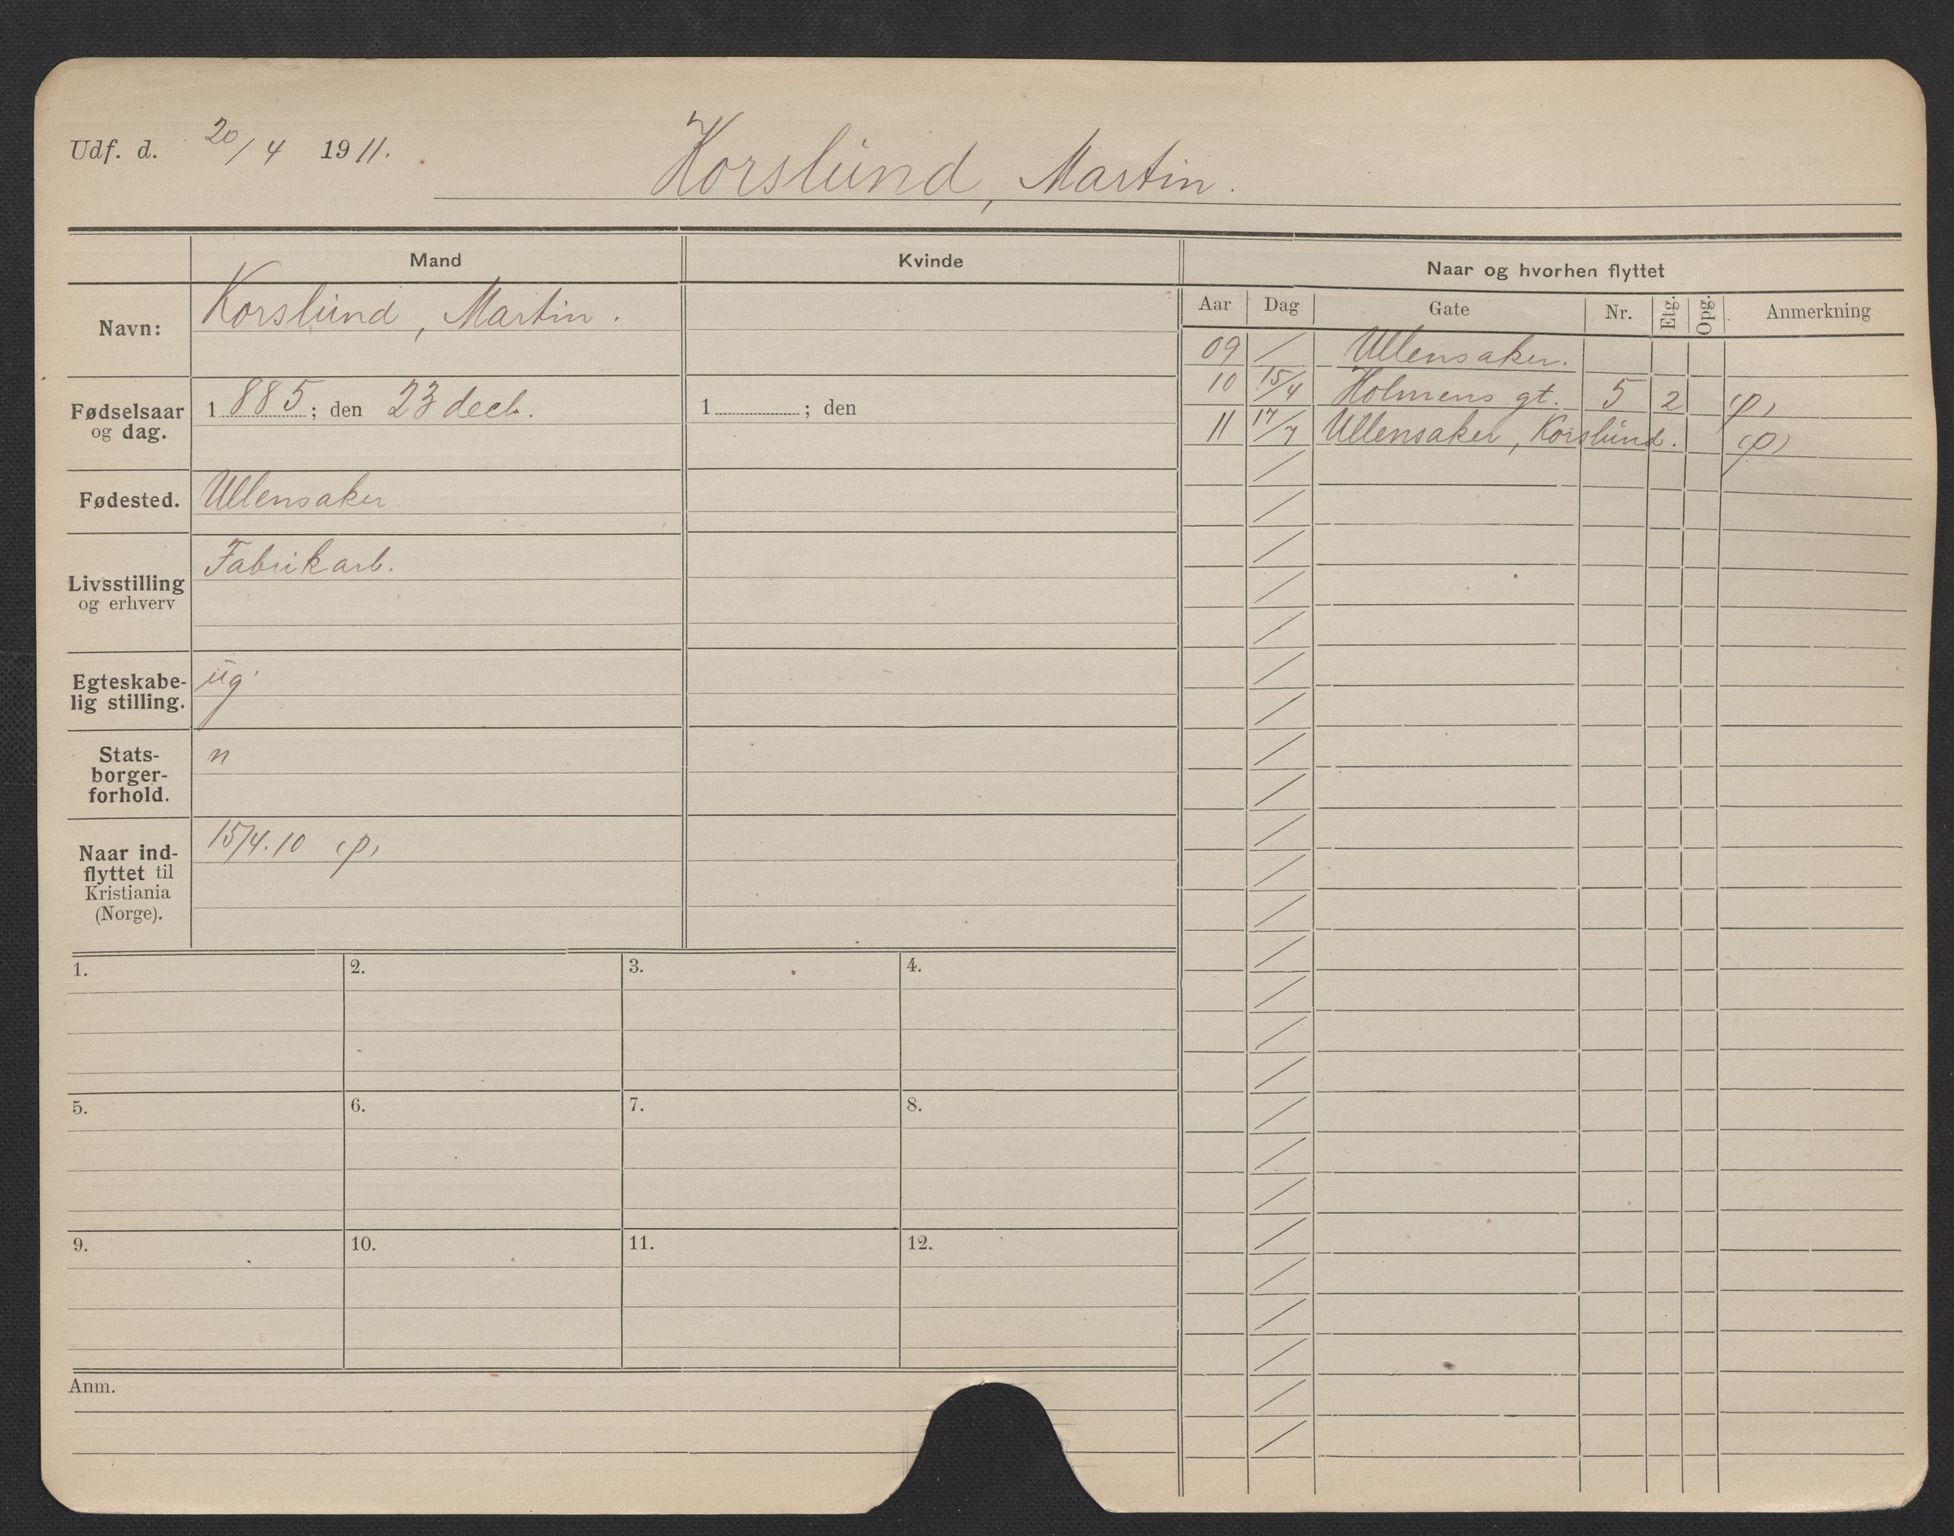 Udf. d. 20/4 1911.
Korslund, Martin.
Mand
Kvinde
Naar og hvorhen flyttet
Aar Dag Gate Nr. Etg. Opg. Anmerkning
Navn: Korslund, Martin.
Fødselsaar
og dag.
1885; den 23 decb.
1 ; den
Fødested. Ullensaker
Livsstilling
og erhverv
Fabrikarb.
Egteskabe-
lig stilling.
ug.
Stats-
borger-
forhold.
n
Naar ind-
flyttet til
Kristiania
(Norge).
15/4.10 (p)
09 / Ullensaker.
10 15/4 Holmens gt. 5 2 (p)
11 17/7 Ullensaker, Korslund. (p)
1. 2. 3. 4.
5. 6. 7. 8.
9. 10. 11. 12.
Anm.